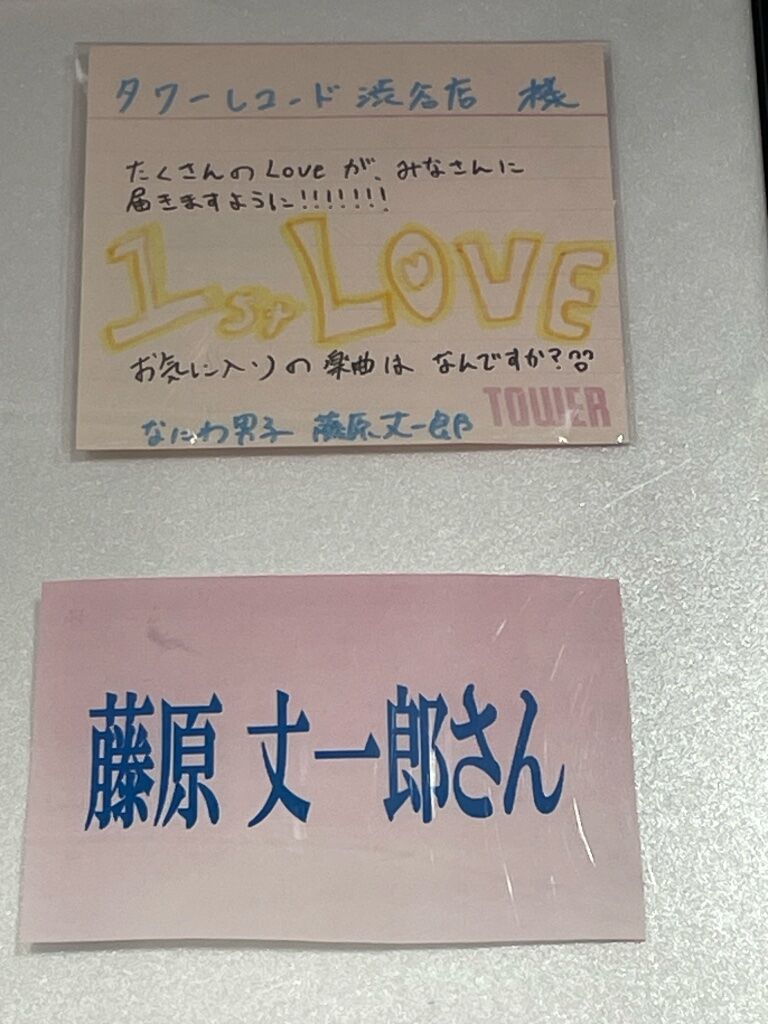 タワーレコード 渋谷店 様
たくさんのLoveが、みなさんに
届きますように!!!!!!!
1st LOVE
お気に入りの楽曲は なんですか?
TOWER
なにわ男子 藤原丈一郎
藤原 丈一郎さん